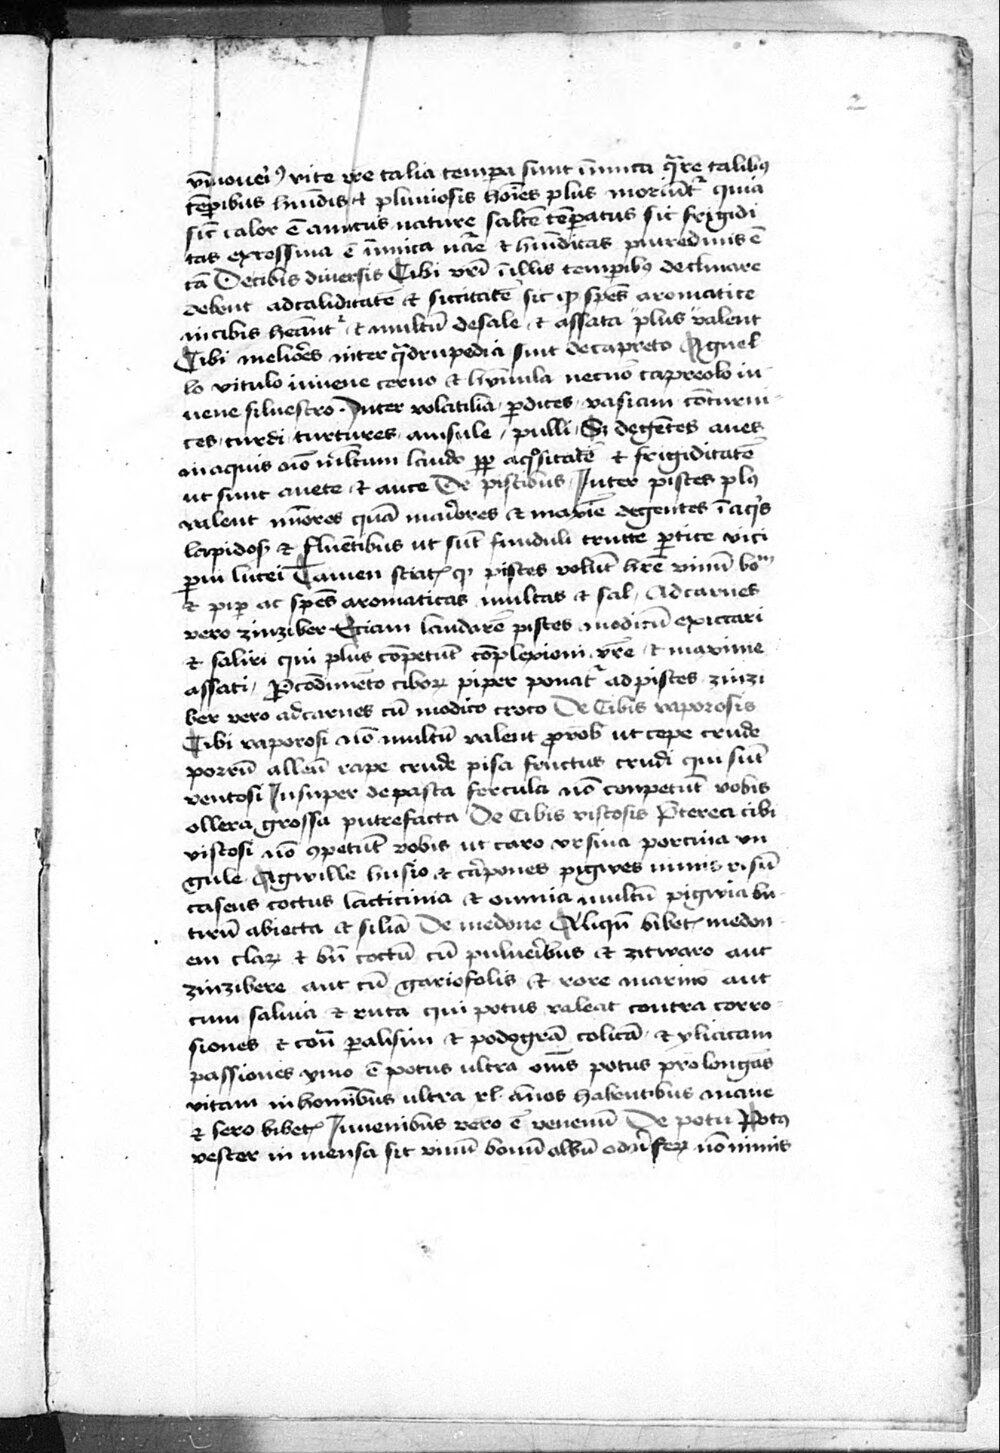 2
vite vre talia tempa sunt inimica Qare talibus
tepribus humidis et pluuiosis hoies plus moriunt quia
sic calor e amicus nature saltē tēpatus sic frigidi
tas excessiua ē inimica nāe et humiditas putredinis ē
cā De cibis diuersis Cibi vri ī illis tempibus declinare
debent ad caliditatē et siccitatē sic qp spēs aromatice
in cibis heant et multū de sale et assata plus valent
Cibi meliores inter qdrupedia sunt de capreto Agnel
lo vitulo iuuene ceruo et hynnula necnō capreolo iu
uene siluestro Inter volatilia pdices vasiani coturni
ces turdi turtures aucule pulli Sz degētes aues
in aquis nō multum laudo pp aqositatē et frigiditatē
ut sunt anete et auce De piscibus Inter pisces plus
valent minores quā maiores et maxīe degentes ī aqis
lapidosis et fluentibus ut sūt funduli trutte ptice
parui lucei Tamen sciatis qp pisces volūt hrē vinū bonum
et pip ac spēs aromaticas multas et sal Ad carnes
vero zinziber Etiam laudarē pisces modicū exiccari
et saliri qui plus cōpetūt cōplexioni vre et maxime
assati P condimēto ciborum piper ponatur ad pisces zinzi
ber vero ad carnes cū modico croco De Cibis vaporosis
Cibi vaporosi nō multū valent vobis ut cepe crude
porrū alleū rape crude pisa fructus crudi qui sūt
ventosi Insuper de pasta fercula nō conpetūt vobis
ollera grossa putrefacta De Cibis viscosis Preterea cibi
viscosi nō cōpetūt vobis ut caro vrsina porcina vn
gule Agwille husio et capones pigwes nimis risū
caseus coctus lacticinia et omnia multū pigwia bu
tirū abiecta et siliā De medone Aliquū bibet medon
em clarum et bn coctū cū pulueribus et zitwaro aut
zinzibere aut cū gariofolis et rore marino aut
cum saluia et ruta qui potus valeat contra corro
siones et conta palisim et podogrā colicā et yliacam
passiones ymo ē potus ultra oms potus prolongās
vitam in hominibus ultra xl annos habentibus mane
et sero bibet Iuuenibus vero ē venenū De potu Potus
vester in mensa sit vinū bonū albū odoriferum nō nimis